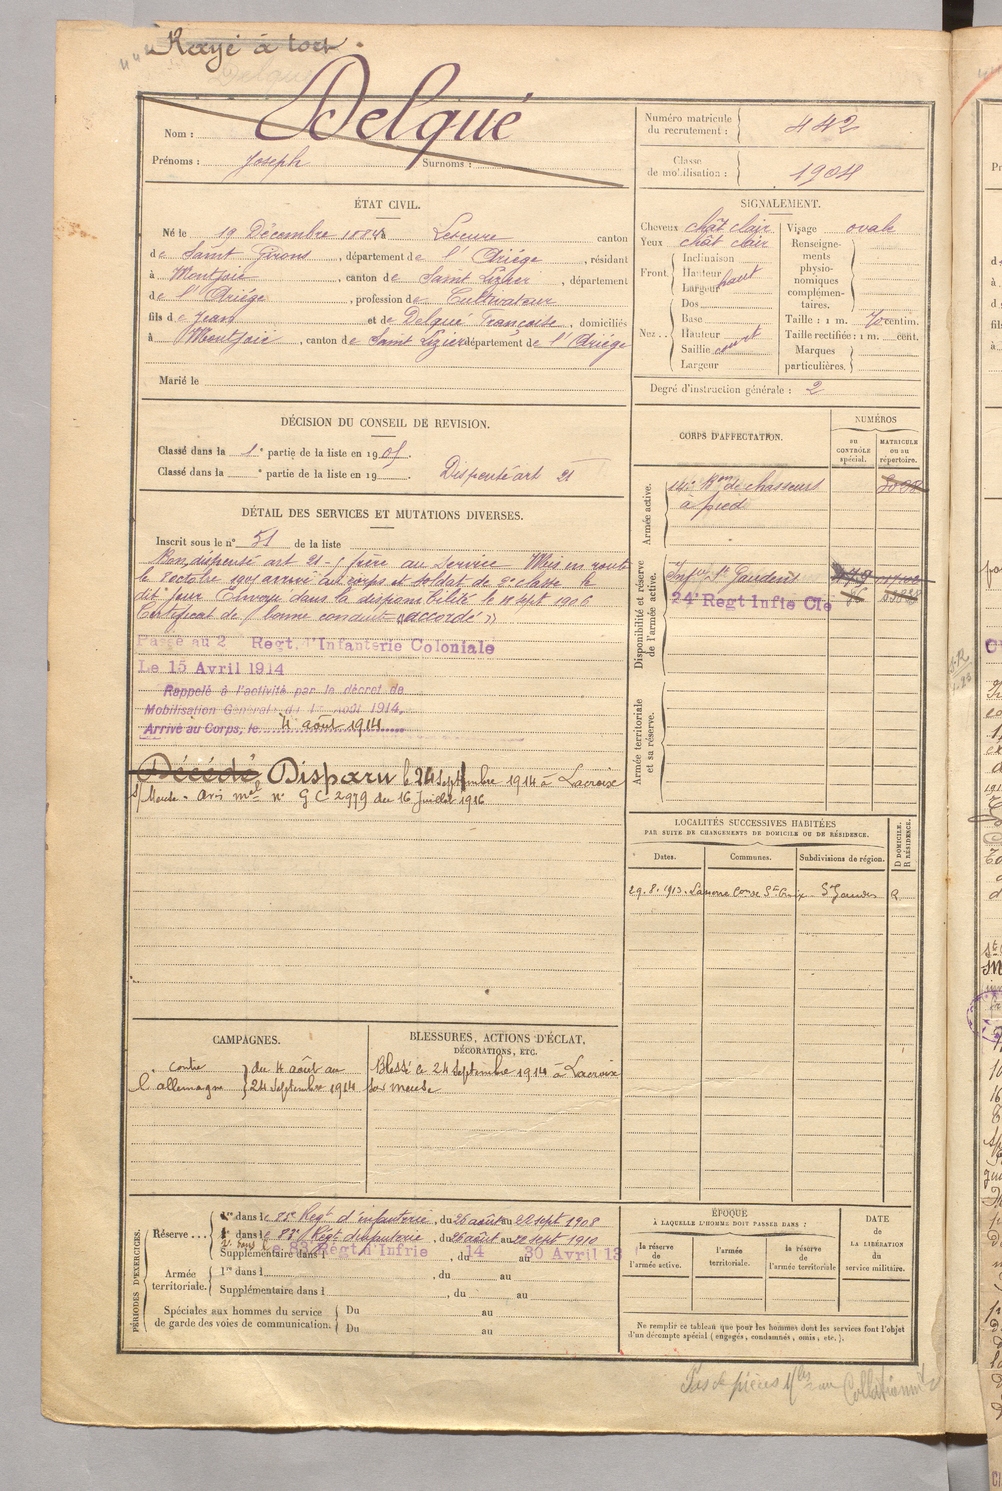 Rayé à tort.
Nom : Delqué
Prénoms : Joseph Surnoms :
Numéro matricule du recrutement : 442
Classe de mobilisation : 1904
ÉTAT CIVIL.
Né le 19 Décembre 1884 à Lescure canton
de Saint Girons, département de l'Ariége, résidant
à Montjoie, canton de Saint Lizier, département
de l'Ariége, profession de Cultivateur
fils de Jean et de Delqué Françoise, domiciliés
à Montjoie, canton de Saint Lizier département de l'Ariége
Marié le
SIGNALEMENT.
Cheveux chât clair
Yeux chât clair
Front.
Inclinaison
Hauteur haut
Largeur
Nez..
Dos
Base
Hauteur
Saillie court
Largeur
Visage ovale
Renseignements physionomiques complémentaires.
Taille : 1 m. 70 centim.
Taille rectifiée : 1 m. cent.
Marques particulières.
Degré d'instruction générale : 2
DÉCISION DU CONSEIL DE REVISION.
Classé dans la 1e partie de la liste en 1905.
Classé dans la e partie de la liste en 19 Dispensé art 21
DÉTAIL DES SERVICES ET MUTATIONS DIVERSES.
Inscrit sous le n° 51 de la liste
Bon dispensé art 21 - frère au Service Mis en route
le 8 octobre 1905 arrivé au corps et soldat de 2e classe le
dit jour Envoyé dans la disponibilité le 18 sept 1906
Certificat de bonne conduite "accordé"
Passé au 2 Regt. d'Infanterie Coloniale
Le 15 Avril 1914
Rappelé à l'activité par le décret de
Mobilisation Générale du 1er Août 1914.
Arrivé au Corps, le 4 août 1914
Décédé Disparu le 24 septembre 1914 à Lacroix
s/ Meuse - Avis mel n° GC 2979 du 16 Juillet 1916
CORPS D'AFFECTATION.
NUMÉROS
AU CONTRÔLE spécial.
MATRICULE ou au répertoire.
Armée active.
14e Bon de chasseurs
à pied
Disponibilité et réserve de l'armée active.
Infie St Gaudens
24 Regt Infie Cle 86
Armée territoriale et sa réserve.
LOCALITÉS SUCCESSIVES HABITÉES
PAR SUITE DE CHANGEMENTS DE DOMICILE OU DE RÉSIDENCE.
Dates.
Communes.
Subdivisions de région.
D DOMICILE.
R RÉSIDENCE.
29.8.1913. St Gaudens R
CAMPAGNES.
contre l'allemagne } du 4 août au
24 septembre 1914
BLESSURES, ACTIONS D'ÉCLAT,
DÉCORATIONS, ETC.
Blessé le 24 septembre 1914 à Lacroix
sur meuse
PÉRIODES D'EXERCICES.
Réserve...
1re dans le 83e Regt d'infanterie, du 26 août au 22 sept 1908
2e dans le 83e Régt d'infanterie, du 26 août au 22 sept 1910
Supplémentaire dans le 83 Régt d'Infrie, du 14 au 30 Avril 13
Armée territoriale.
1re dans l , du au
Supplémentaire dans l , du au
Spéciales aux hommes du service de garde des voies de communication.
Du au
Du au
ÉPOQUE
À LAQUELLE L'HOMME DOIT PASSER DANS :
la réserve de l'armée active.
l'armée territoriale.
la réserve de l'armée territoriale
DATE DE LA LIBÉRATION du service militaire.
Ne remplir ce tableau que pour les hommes dont les services font l'objet
d'un décompte spécial (engagés, condamnés, omis, etc.).
Pas de pièces